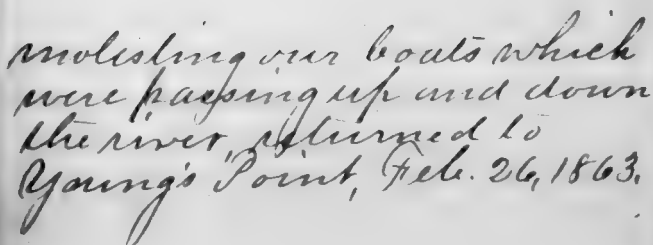 molesting our boats which
were passing up and down
the river, returned to
Young's Point, Feb. 26, 1863.